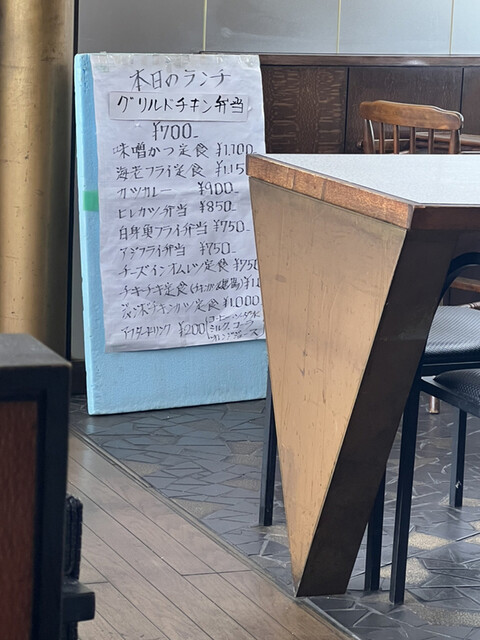 本日のランチ
グリルドチキン弁当
¥700-
味噌かつ定食 ¥1,100
海老フライ定食 ¥1,15
カツカレー ¥900-
ヒレカツ弁当 ¥850-
白身魚フライ弁当 ¥750-
アジフライ弁当 ¥750-
チーズインオムレツ定食 ¥750
チキチキ定食
チキンカツ定食 ¥1,000
アフタードリンク ¥200